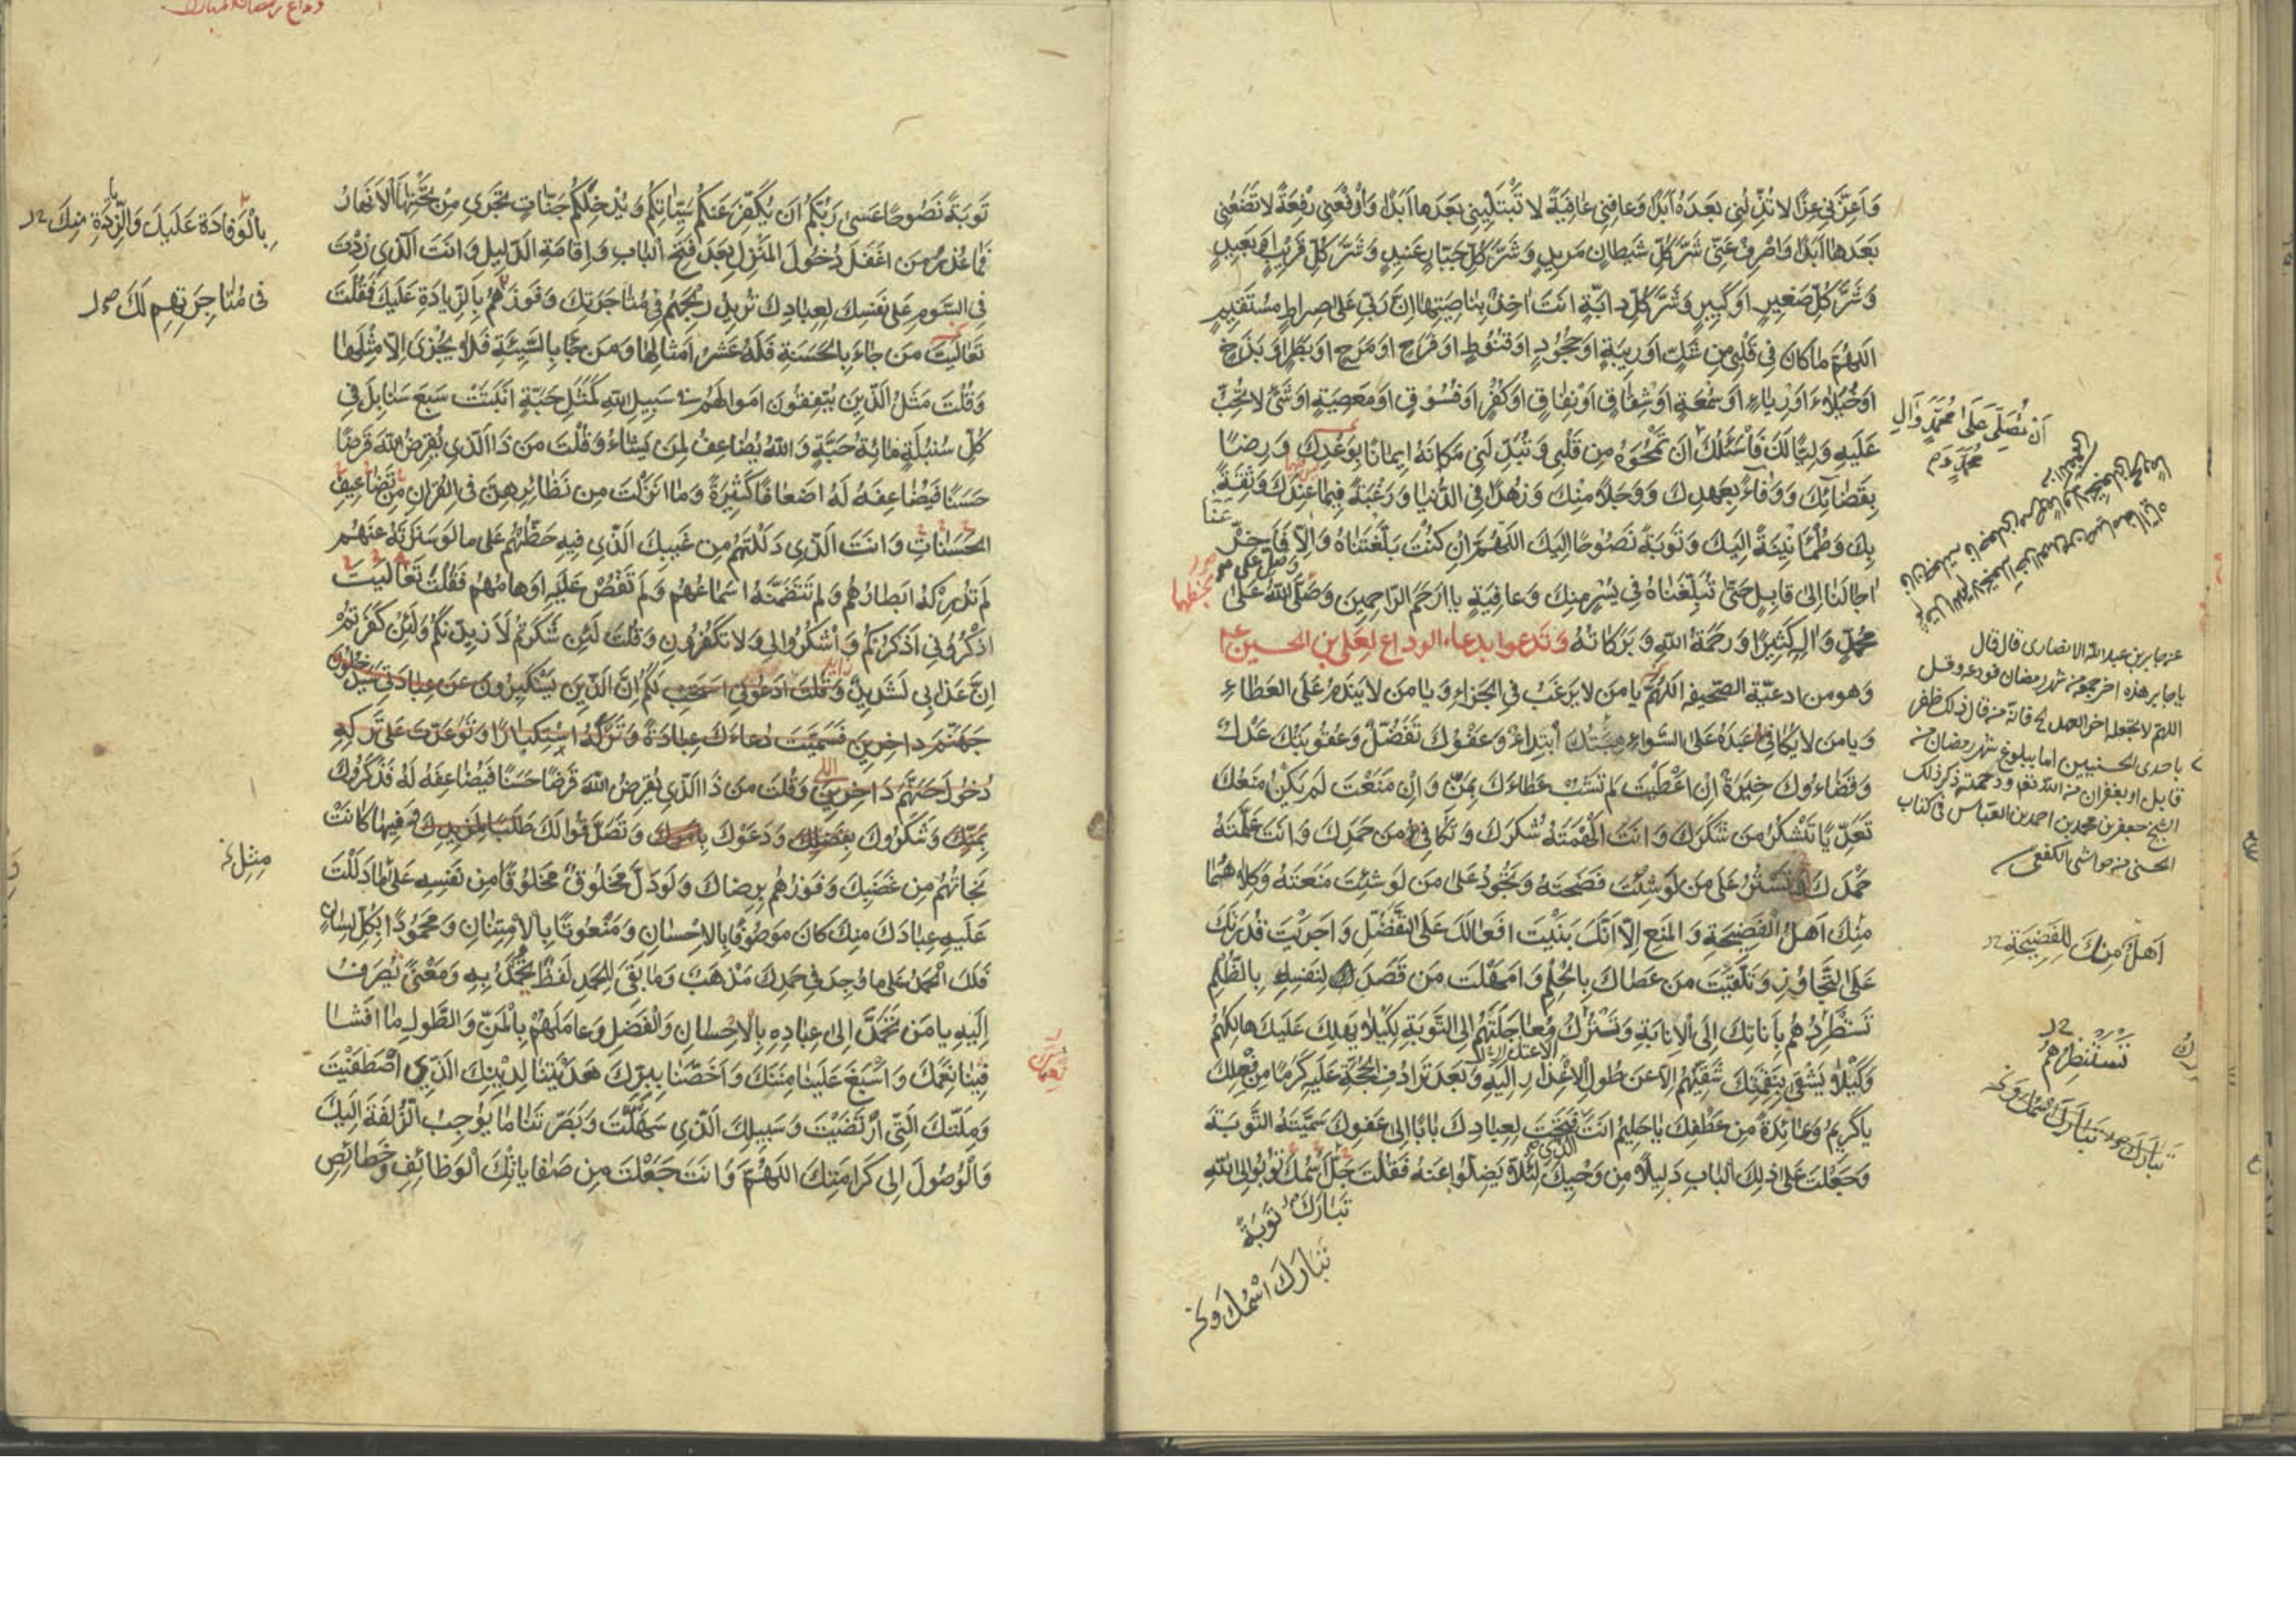 وَاَعِزَّنِي عِزًّا لَا تُذِلُّنِي بَعْدَهُ اَبَدًا وَعَافِنِي عَافِيَةً لَا تَبْتَلِيَنِي بَعْدَهَا اَبَدًا وَارْفَعْنِي رِفْعَةً لَا تَضَعُنِي
بَعْدَهَا اَبَدًا وَاصْرِفْ عَنِّي شَرَّ كُلِّ شَيْطَانٍ مَرِيدٍ وَشَرَّ كُلِّ جَبَّارٍ عَنِيدٍ وَشَرَّ كُلِّ قَرِيبٍ اَوْ بَعِيدٍ
وَشَرَّ كُلِّ صَغِيرٍ اَوْ كَبِيرٍ وَشَرَّ كُلِّ دَابَّةٍ اَنْتَ اٰخِذٌ بِنَاصِيَتِهَا اِنَّ رَبِّي عَلٰى صِرَاطٍ مُسْتَقِيمٍ
اَللّٰهُمَّ مَا كَانَ فِي قَلْبِي مِنْ شَكٍّ اَوْ رِيبَةٍ اَوْ جُحُودٍ اَوْ قُنُوطٍ اَوْ فَرَحٍ اَوْ مَرَحٍ اَوْ بَطَرٍ اَوْ بَذَخٍ
اَوْ خُيَلَاءَ اَوْ رِيَاءٍ اَوْ سُمْعَةٍ اَوْ شِقَاقٍ اَوْ نِفَاقٍ اَوْ كُفْرٍ اَوْ فُسُوقٍ اَوْ مَعْصِيَةٍ اَوْ شَيْءٍ لَا تُحِبُّ
عَلَيْهِ وَلِيًّا لَكَ فَاَسْئَلُكَ اَنْ تَمْحُوَهُ مِنْ قَلْبِي وَتُبَدِّلَنِي مَكَانَهُ اِيمَانًا بِوَعْدِكَ وَرِضًا
بِقَضَائِكَ وَوَفَاءً بِعَهْدِكَ وَوَجَلًا مِنْكَ وَزُهْدًا فِي الدُّنْيَا وَرَغْبَةً فِيمَا عِنْدَكَ وَثِقَةً
بِكَ وَطُمَأْنِينَةً اِلَيْكَ وَتَوْبَةً نَصُوحًا اِلَيْكَ اَللّٰهُمَّ اِنْ كُنْتَ بَلَّغْتَنَاهُ وَاِلَّا فَاَخِّرْ
اٰجَالَنَا اِلٰى قَابِلٍ حَتّٰى تُبَلِّغَنَاهُ فِي يُسْرٍ مِنْكَ وَعَافِيَةٍ يَا اَرْحَمَ الرَّاحِمِينَ وَصَلَّى اللهُ عَلٰى
مُحَمَّدٍ وَاٰلِهِ كَثِيرًا وَرَحْمَةُ اللهِ وَبَرَكَاتُهُ وَتَدْعُوا بِدُعَاءِ الوداع لِعَلِيِّ بْنِ الحُسَيْنِ ع
وَهُوَ مِنْ اَدْعِيَةِ الصَّحِيفَةِ اَللّٰهُمَّ يَا مَنْ لَا يَرْغَبُ فِي الْجَزَاءِ وَيَا مَنْ لَا يَنْدَمُ عَلَى الْعَطَاءِ
وَيَا مَنْ لَا يُكَافِي عَبْدَهُ عَلَى السَّوَاءِ مِنَّتُكَ ابْتِدَاءٌ وَعَفْوُكَ تَفَضُّلٌ وَعُقُوبَتُكَ عَدْلٌ
وَقَضَاءُوكَ خِيَرَةٌ اِنْ اَعْطَيْتَ لَمْ تَشُبْ عَطَاءَكَ بِمَنٍّ وَاِنْ مَنَعْتَ لَمْ يَكُنْ مَنْعُكَ
تَعَدِّيًا تَشْكُرُ مَنْ شَكَرَكَ وَاَنْتَ اَلْهَمْتَهُ شُكْرَكَ وَتُكَافِي مَنْ حَمِدَكَ وَاَنْتَ عَلَّمْتَهُ
حَمْدَكَ تَسْتُرُ عَلٰى مَنْ لَوْ شِئْتَ فَضَحْتَهُ وَتَجُودُ عَلٰى مَنْ لَوْ شِئْتَ مَنَعْتَهُ وَكِلَاهُمَا
مِنْكَ اَهْلُ الْفَضِيحَةِ وَالْمَنْعِ اِلَّا اَنَّكَ بَنَيْتَ اَفْعَالَكَ عَلَى التَّفَضُّلِ وَاَجْرَيْتَ قُدْرَتَكَ
عَلَى التَّجَاوُزِ وَتَلَقَّيْتَ مَنْ عَصَاكَ بِالْحِلْمِ وَاَمْهَلْتَ مَنْ قَصَدَ لِنَفْسِهِ بِالظُّلْمِ
تَسْتَطْرِدُهُمْ بِاَنَاتِكَ اِلَى الْاِنَابَةِ وَتَتْرُكُ مُعَاجَلَتَهُمْ اِلَى التَّوْبَةِ لِكَيْلَا يَهْلِكَ عَلَيْكَ هَالِكُهُمْ
وَكَيْلَا يَشْقٰى بِنِقْمَتِكَ شَقِيُّهُمْ اِلَّا عَنْ طُولِ الْاِعْذَارِ اِلَيْهِ وَبَعْدَ تَرَادُفِ الْحُجَّةِ عَلَيْهِ كَرَمًا مِنْ فِعْلِكَ
يَا كَرِيمُ وَعَائِدَةً مِنْ عَطْفِكَ يَا حَلِيمُ اَنْتَ فَتَحْتَ لِعِبَادِكَ بَابًا اِلٰى عَفْوِكَ سَمَّيْتَهُ التَّوْبَةَ
وَجَعَلْتَ عَلٰى ذٰلِكَ الْبَابِ دَلِيلًا مِنْ وَحْيِكَ لِئَلَّا يَضِلُّوا عَنْهُ فَقُلْتَ جَلَّ اسْمُكَ تُوبُوا اِلَى اللهِ
تَبَارَكَ تَوْبَةً
تَبَارَكَ اسْمُكَ وَ
اَنْ تُصَلِّيَ عَلٰى مُحَمَّدٍ وَاٰلِ
مُحَمَّدٍ
عن جابر بن عبد الله الانصارى قال قال
يا جابر هذه اخر جمعة من شهر رمضان فودعه وقل
اللهم لا تجعله اخر العهد فانه من قال ذلك ظفر
باحدى الحسنيين اما ببلوغ شهر رمضان من
قابل او بغفران من الله تعم ورحمته ذكر ذلك
الشيخ جعفر بن محمد بن احمد بن العباس فى كتاب
الحسنى من حواشى الكفعمى
اَهْلٌ مِنْكَ لِلْفَضِيحَةِ
تَسْتَنْظِرُهُمْ
تَوْبَةً نَصُوحًا عَسٰى رَبُّكُمْ اَنْ يُكَفِّرَ عَنْكُمْ سَيِّئَاتِكُمْ وَيُدْخِلَكُمْ جَنَّاتٍ تَجْرِي مِنْ تَحْتِهَا الْاَنْهَارُ
فَمَا عُذْرُ مَنْ اَغْفَلَ دُخُولَ الْمَنْزِلِ بَعْدَ فَتْحِ الْبَابِ وَاِقَامَةِ الدَّلِيلِ وَاَنْتَ الَّذِي زِدْتَ
فِي السَّوْمِ عَلٰى نَفْسِكَ لِعِبَادِكَ تُرِيدُ رِبْحَهُمْ فِي مُتَاجَرَتِكَ وَفَوْزَهُمْ بِالزِّيَادَةِ عَلَيْكَ فَقُلْتَ
تَعَالَيْتَ مَنْ جَاءَ بِالْحَسَنَةِ فَلَهُ عَشْرُ اَمْثَالِهَا وَمَنْ جَاءَ بِالسَّيِّئَةِ فَلَا يُجْزٰى اِلَّا مِثْلَهَا
وَقُلْتَ مَثَلُ الَّذِينَ يُنْفِقُونَ اَمْوَالَهُمْ فِي سَبِيلِ اللهِ كَمَثَلِ حَبَّةٍ اَنْبَتَتْ سَبْعَ سَنَابِلَ فِي
كُلِّ سُنْبُلَةٍ مِائَةُ حَبَّةٍ وَاللهُ يُضَاعِفُ لِمَنْ يَشَاءُ وَقُلْتَ مَنْ ذَا الَّذِي يُقْرِضُ اللهَ قَرْضًا
حَسَنًا فَيُضَاعِفَهُ لَهُ اَضْعَافًا كَثِيرَةً وَمَا اَنْزَلْتَ مِنْ نَظَائِرِهِنَّ فِي الْقُرْاٰنِ مِنْ تَضَاعِيفِ
الْحَسَنَاتِ وَاَنْتَ الَّذِي دَلَلْتَهُمْ مِنْ غَيْبِكَ الَّذِي فِيهِ حَظُّهُمْ عَلٰى مَا لَوْ سَتَرْتَهُ عَنْهُمْ
لَمْ تُدْرِكْهُ اَبْصَارُهُمْ وَلَمْ تَتَضَمَّنْهُ اَسْمَاعُهُمْ وَلَمْ تَغُصْ عَلَيْهِ اَوْهَامُهُمْ فَقُلْتَ تَعَالَيْتَ
اُذْكُرُونِي اَذْكُرْكُمْ وَاشْكُرُوا لِي وَلَا تَكْفُرُونِ وَقُلْتَ لَئِنْ شَكَرْتُمْ لَاَزِيدَنَّكُمْ وَلَئِنْ كَفَرْتُمْ
اِنَّ عَذَابِي لَشَدِيدٌ وَقُلْتَ ادْعُونِي اَسْتَجِبْ لَكُمْ اِنَّ الَّذِينَ يَسْتَكْبِرُونَ عَنْ عِبَادَتِي سَيَدْخُلُونَ
جَهَنَّمَ دَاخِرِينَ فَسَمَّيْتَ دُعَاءَكَ عِبَادَةً وَتَرْكَهُ اسْتِكْبَارًا وَتَوَعَّدْتَ عَلٰى تَرْكِهِ
دُخُولَ جَهَنَّمَ دَاخِرِينَ وَقُلْتَ مَنْ ذَا الَّذِي يُقْرِضُ اللهَ قَرْضًا حَسَنًا فَيُضَاعِفَهُ لَهُ فَذَكَرُوكَ
بِمَنِّكَ وَشَكَرُوكَ بِفَضْلِكَ وَدَعَوْكَ بِاَمْرِكَ وَتَصَدَّقُوا لَكَ طَلَبًا لِمَزِيدِكَ وَفِيهَا كَانَتْ
نَجَاتُهُمْ مِنْ غَضَبِكَ وَفَوْزُهُمْ بِرِضَاكَ وَلَوْ دَلَّ مَخْلُوقٌ مَخْلُوقًا مِنْ نَفْسِهِ عَلٰى مَا دَلَلْتَ
عَلَيْهِ عِبَادَكَ مِنْكَ كَانَ مَوْصُوفًا بِالْاِحْسَانِ وَمَنْعُوتًا بِالْاِمْتِنَانِ وَمَحْمُودًا بِكُلِّ لِسَانٍ
فَلَكَ الْحَمْدُ عَلٰى مَا وُجِدَ فِي حَمْدِكَ مَذْهَبٌ وَمَا بَقِيَ لِلْحَمْدِ لَفْظٌ تُحْمَدُ بِهِ وَمَعْنًى يُصْرَفُ
اِلَيْهِ يَا مَنْ تَحَمَّدَ اِلٰى عِبَادِهِ بِالْاِحْسَانِ وَالْفَضْلِ وَعَامَلَهُمْ بِالْمَنِّ وَالطَّوْلِ مَا اَفْشَا
فِينَا نِعْمَتَكَ وَاَسْبَغَ عَلَيْنَا مِنَّتَكَ وَاَخَصَّنَا بِبِرِّكَ هَدَيْتَنَا لِدِينِكَ الَّذِي اصْطَفَيْتَ
وَمِلَّتِكَ الَّتِي ارْتَضَيْتَ وَسَبِيلِكَ الَّذِي سَهَّلْتَ وَبَصَّرْتَنَا مَا يُوجِبُ الزُّلْفَةَ اِلَيْكَ
وَالْوُصُولَ اِلٰى كَرَامَتِكَ اَللّٰهُمَّ وَاَنْتَ جَعَلْتَ مِنْ صَفَايَا تِلْكَ الْوَظَائِفِ وَخَصَائِصِ
بِالْوِفَادَةِ عَلَيْكَ وَالزِّيَادَةِ مِنْكَ
فِي مُتَاجَرَتِهِمْ لَكَ
مِثْلِ